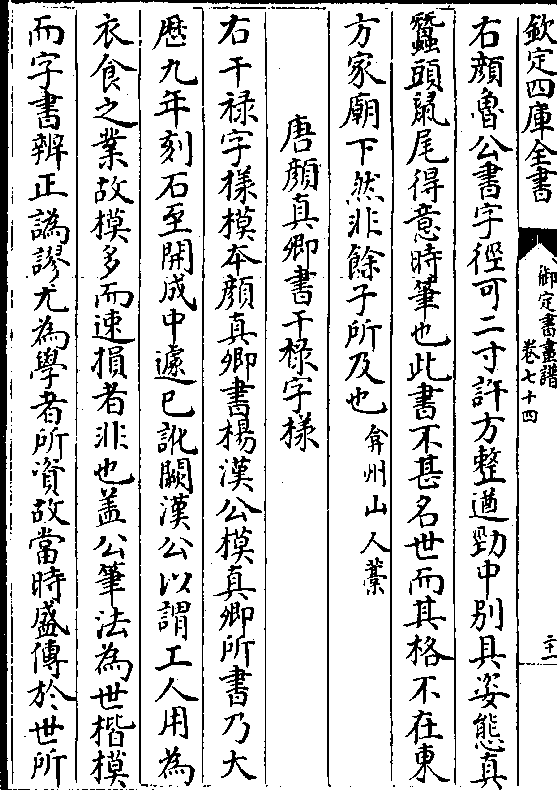 欽定四庫全書
御定書畫譜
卷七十四
二十一
右顔魯公書字徑可二寸許方整遒勁中别具姿態真
蠶頭鼠尾得意時筆也此書不甚名世而其格不在東
方家廟下然非餘子所及也弇州山人藁
唐顔真卿書干祿字様
右干禄字様模本顔真卿書楊漢公模真卿所書乃大
厯九年刻石至開成中遽已訛闕漢公以謂工人用為
衣食之業故模多而速損者非也盖公筆法為世楷模
而字書辨正譌謬尤為學者所資故當時盛傳於世所